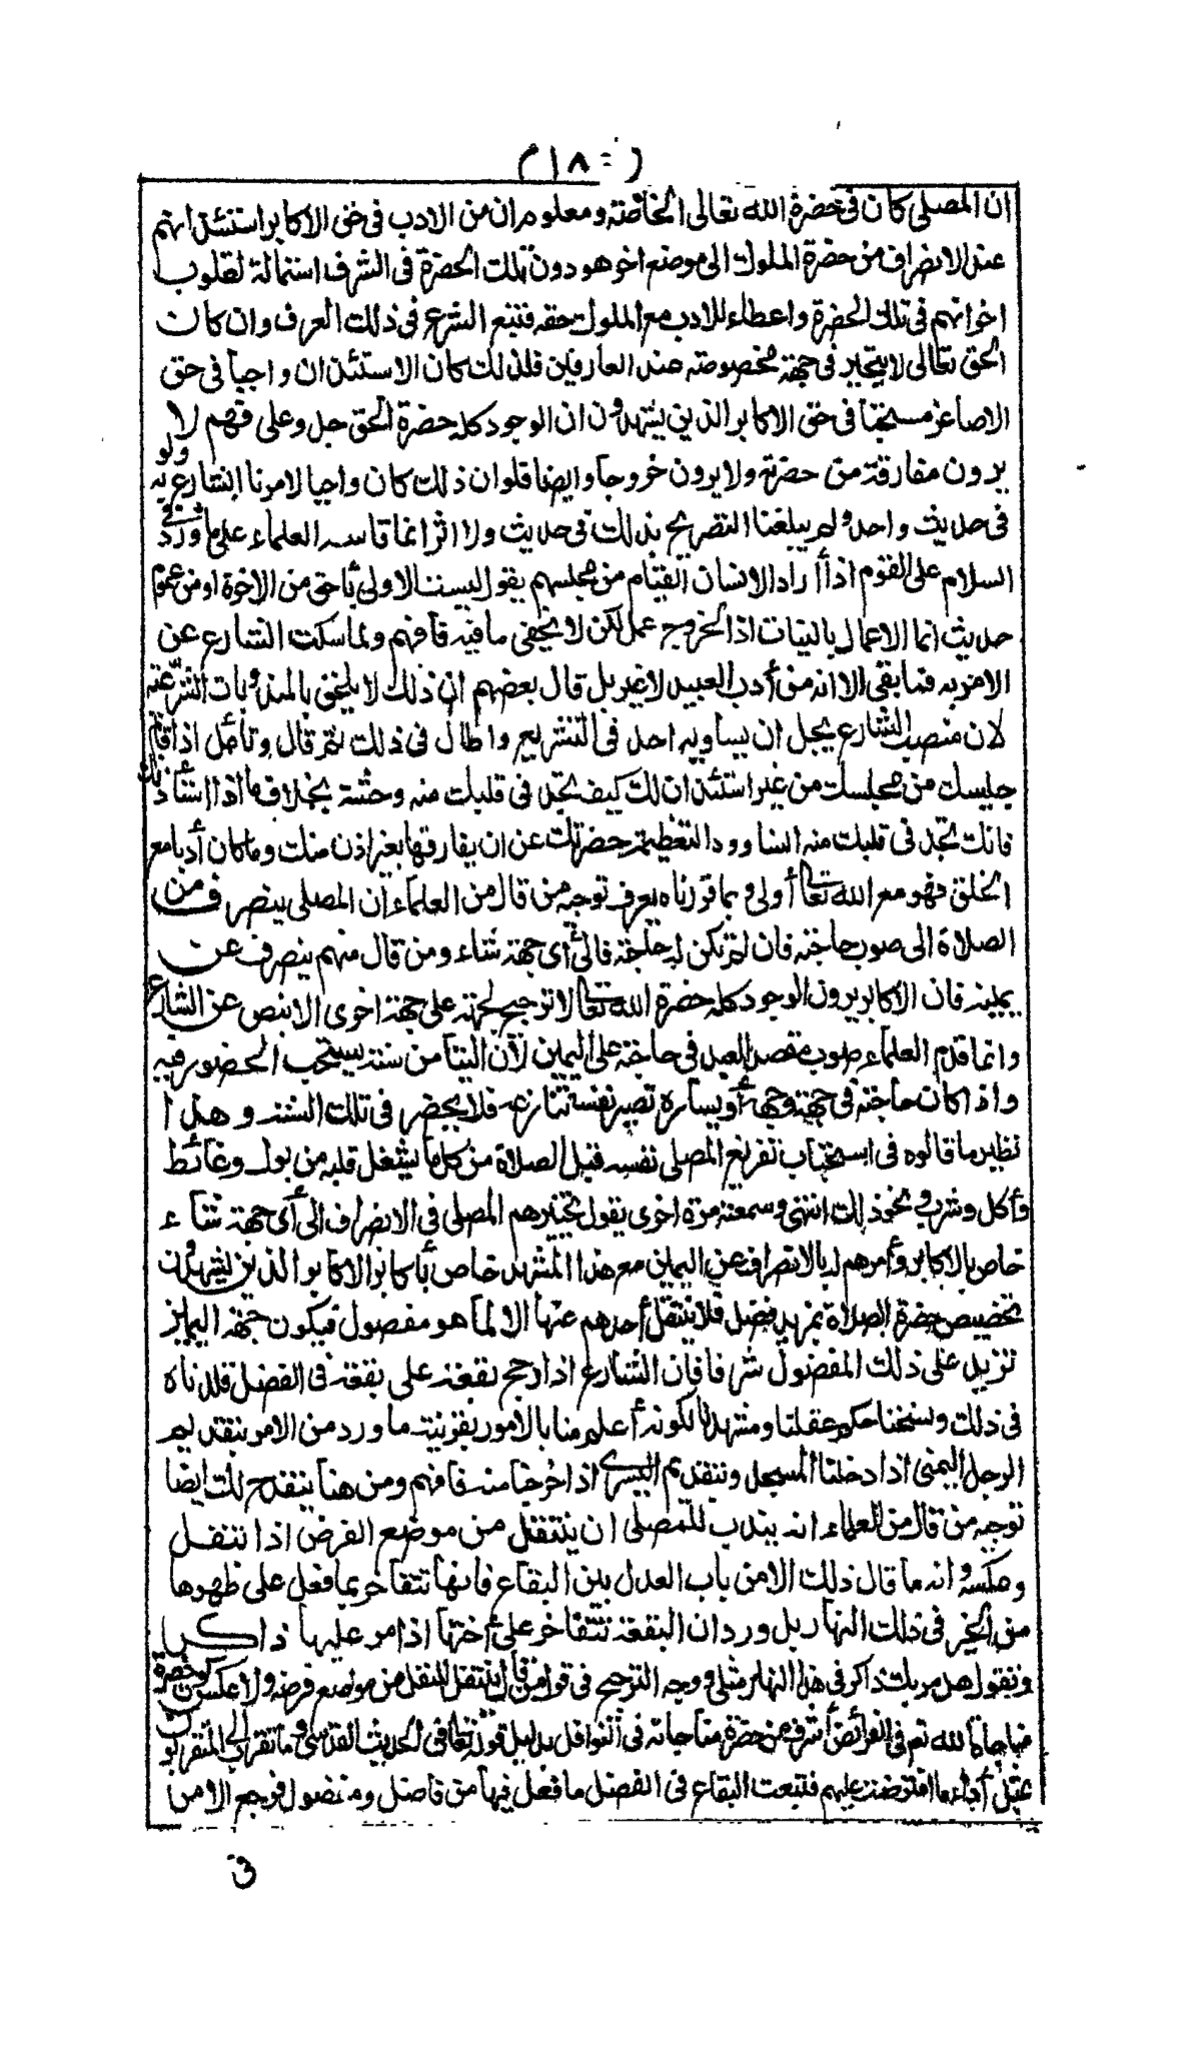 (١٨٠)
ان المصلى كان فى حضرة الله تعالى الخاصة ومعلوم ان من الادب فى حق الاكابر استئذانهم
عند الانصراف من حضرة الملوك الى موضع اخر هو دون تلك الحضرة فى الشرف استمالة لقلوب
اخوانهم فى تلك الحضرة واعطاء للادب مع الملوك حقه فتبع الشرع فى ذلك العرف وان كان
الحق تعالى لا يتحيز فى جهة مخصوصة عند العارفين فلذلك كان الاستئذان واجبا فى حق
الاصاغر مستحبا فى حق الاكابر الذين يشهدون ان الوجود كله حضرة الحق جل وعلى فهم لا
يرون مفارقة من حضرته ولا يرون خروجا وايضا فلو ان ذلك كان واجبا لامرنا الشارع به ولو
فى حديث واحد ولم يبلغنا التصريح بذلك فى حديث ولا اثر انما قاسه العلماء على ما ورد فى
السلام على القوم اذا أراد الانسان القيام من مجلسهم يقول ليست الاولى بأحق من الاخرة او من عموم
حديث انما الاعمال بالنيات اذ الخروج عمل لكن لا يخفى ما فيه فافهم ولما سكت الشارع عن
الامر به فما بقى الا انه من أدب العبيد لا غير بل قال بعضهم ان ذلك لا يلحق بالمندوبات الشرعية
لان منصب الشارع يجل ان يساويه احد فى التشريع واطال فى ذلك ثم قال وتأمل اذا قام
جليسك من مجلسك من غير استئذان لك كيف تجد فى قلبك منه وحشة بخلاف ما اذا استأذنك
فانك تجد فى قلبك منه انسا وودا لتعظيمه حضرتك عن ان يفارقها بغير اذن منك وما كان أدبا مع
الخلق فهو مع الله تعالى أولى وبما قررناه يعرف توجيه من قال من العلماء ان المصلى ينصرف من
الصلاة الى صوب حاجته فان لم تكن له حاجة فالى أى جهة شاء ومن قال منهم ينصرف عن
يمينه فان الاكابر يرون الوجود كله حضرة الله تعالى لا ترجيح لجهة على جهة اخرى الا بنص عن الشارع
وانما قدم العلماء صوب مقصد العبد فى حاجته على اليمين لأن التيامن سنة يستحب الحضور فيه
واذا كان حاجته فى جهة وجهه أو يساره تصير نفسه تنازعه فلا يحضر فى تلك السنة وهذا
نظير ما قالوه فى استحباب تفريغ المصلى نفسه قبل الصلاة من كل ما يشغل قلبه من بول وغائط
وأكل وشرب ونحو ذلك انتهى وسمعته مرة اخرى يقول تخييرهم المصلى فى الانصراف الى أى جهة شاء
خاص بالاكابر وأمرهم له بالانصراف عن اليمين مع هذا المشهد خاص بأكابر الاكابر الذين يشهدون
تخصيص حضرة الصلاة بمزيد فضل فلا ينتقل أحدهم عنها الا لما هو مفضول فيكون جهة اليمين
تزيد على ذلك المفضول شرفا فان الشارع اذا رجح بقعة على بقعة فى الفضل قلدناه
فى ذلك ونسخنا حكم عقلنا ومشهدنا لكونه أعلم منا بالامور بقرينة ما ورد من الامر بتقديم
الرجل اليمنى اذا دخلنا المسجد وتقديم اليسرى اذا خرجنا منه فافهم ومن هنا ينقدح لك ايضا
توجيه من قال من العلماء انه يندب للمصلى ان ينتقل من موضع الفرض اذا تنفل
وعكسه وانه ما قال ذلك الا من باب العدل بين البقاع فانها تتفاخر بما فعل على ظهرها
من الخير فى ذلك النهار بل ورد ان البقعة تتفاخر على أختها اذا مر عليها ذاكر
وتقول هل مر بك ذاكر فى هذا النهار مثلى ووجه الترجيح فى قول من قال ينتقل للنفل من موضع فرضه ولا عكس كون حضرة
مناجاة الله تعم فى الفرائض أشرف من حضرة مناجاته فى النوافل بدليل قوله تعالى فى الحديث القدسى وما تقرب الى المتقربون
بمثل أداء ما افترضت عليهم فتبعت البقاع فى الفضل ما فعل فيها من فاضل ومفضول فرجع الامر